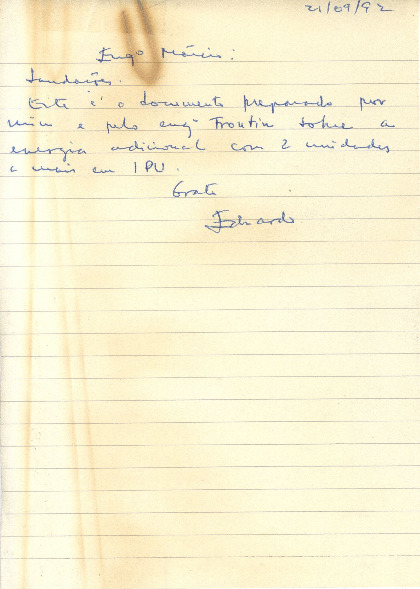 21/09/92
Engº Márcio:
Saudações.
Este é o documento preparado por
mim e pelo engº Frontin sobre a
energia adicional com 2 unidades
a mais em IPU.
Grato
Eduardo